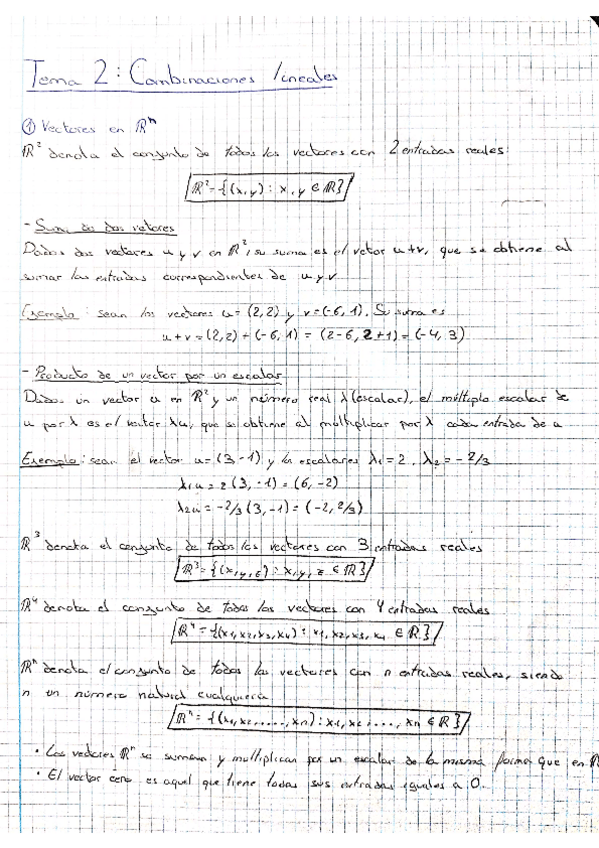 Tema 2: Combinaciones lineales
① Vectores en ℝⁿ
ℝ² denota el conjunto de todos los vectores con 2 entradas reales:
ℝ² = {(x,y) : x,y ∈ ℝ}
- Suma de dos vectores
Dados dos vectores u y v en ℝ², su suma es el vector u+v, que se obtiene al
sumar las entradas correspondientes de u y v
Ejemplo: sean los vectores u = (2,2) y v = (-6,1). Su suma es
u + v = (2,2) + (-6,1) = (2-6, 2+1) = (-4, 3)
- Producto de un vector por un escalar
Dados un vector u en ℝ² y un número real λ (escalar), el múltiplo escalar de
u por λ es el vector λu, que se obtiene al multiplicar por λ cada entrada de u
Ejemplo: sean el vector u = (3,-1) y los escalares λ₁ = 2, λ₂ = -2/3
λ₁u = 2(3,-1) = (6,-2)
λ₂u = -2/3(3,-1) = (-2, 2/3)
ℝ³ denota el conjunto de todos los vectores con 3 entradas reales
ℝ³ = {(x,y,z) : x,y,z ∈ ℝ}
ℝ⁴ denota el conjunto de todos los vectores con 4 entradas reales
ℝ⁴ = {(x₁,x₂,x₃,x₄) : x₁,x₂,x₃,x₄ ∈ ℝ}
ℝⁿ denota el conjunto de todos los vectores con n entradas reales, siendo
n un número natural cualquiera
ℝⁿ = {(x₁,x₂,....,xn) : x₁,x₂,...., xn ∈ ℝ}
• Los vectores ℝⁿ se suman y multiplican por un escalar de la misma forma que en
• El vector cero es aquel que tiene todas sus entradas iguales a 0.